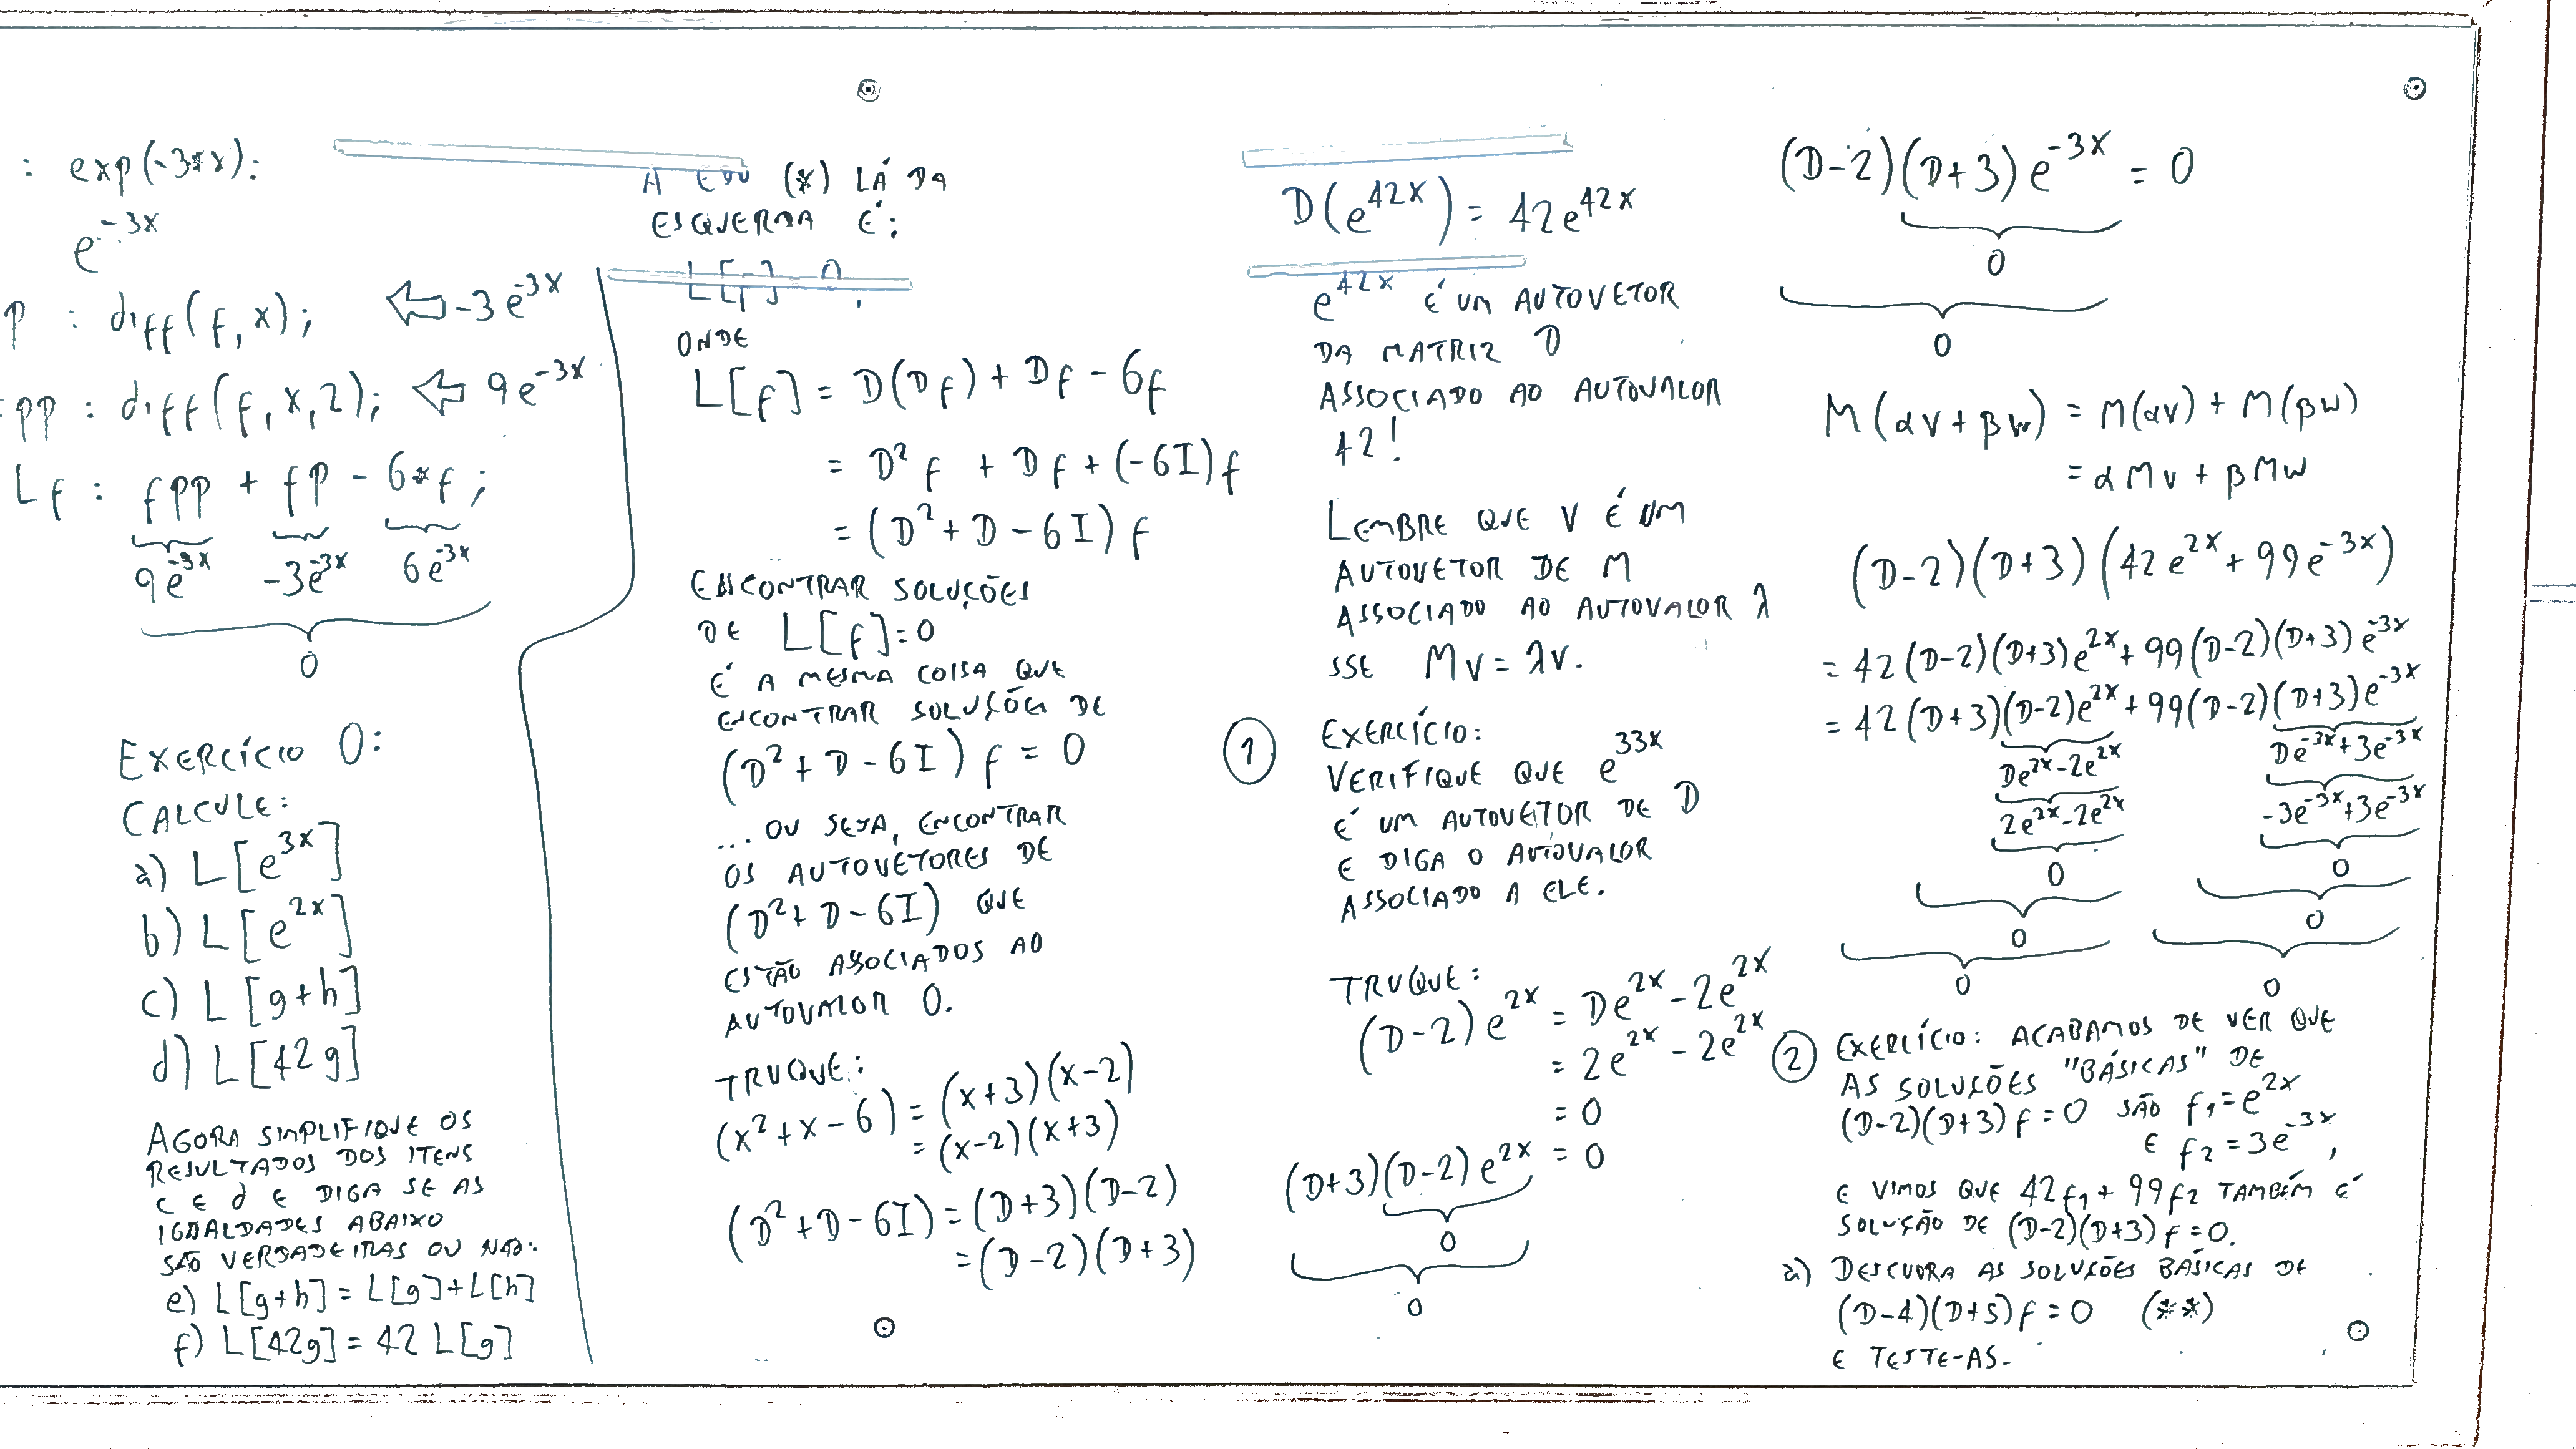 : exp(-3*x):
e^-3x
p : diff(f,x); ⇐ -3e^-3x
fpp : diff(f,x,2); ⇐ 9e^-3x
Lf : fpp + fp - 6*f;
9e^-3x -3e^-3x 6e^-3x
0
EXERCÍCIO 0:
CALCULE:
a) L[e^3x]
b) L[e^2x]
c) L[g+h]
d) L[42g]
AGORA SIMPLIFIQUE OS
RESULTADOS DOS ITENS
C E d E DIGA SE AS
IGUALDADES ABAIXO
SÃO VERDADEIRAS OU NÃO:
e) L[g+h] = L[g]+L[h]
f) L[42g] = 42 L[g]
A EDO (*) LÁ DA
ESQUERDA É:
L[f] = 0,
ONDE
L[f] = D(Df) + Df - 6f
= D² f + Df + (-6I)f
= (D²+D-6I) f
ENCONTRAR SOLUÇÕES
DE L[f]=0
É A MESMA COISA QUE
ENCONTRAR SOLUÇÕES DE
(D²+D-6I) f = 0
... OU SEJA, ENCONTRAR
OS AUTOVETORES DE
(D²+D-6I) QUE
ESTÃO ASSOCIADOS AO
AUTOVALOR 0.
TRUQUE:
(x²+x-6) = (x+3)(x-2)
= (x-2)(x+3)
(D²+D-6I) = (D+3)(D-2)
= (D-2)(D+3)
D(e^42x) = 42e^42x
e^42x É UM AUTOVETOR
DA MATRIZ D
ASSOCIADO AO AUTOVALOR
42!
LEMBRE QUE V É UM
AUTOVETOR DE M
ASSOCIADO AO AUTOVALOR λ
SSE Mv = λv.
① EXERCÍCIO:
VERIFIQUE QUE e^33x
É UM AUTOVETOR DE D
E DIGA O AUTOVALOR
ASSOCIADO A ELE.
TRUQUE:
(D-2) e^2x = De^2x - 2e^2x
= 2e^2x - 2e^2x
= 0
(D+3)(D-2) e^2x = 0
0
0
(D-2)(D+3) e^-3x = 0
0
0
M(αv+βw) = M(αv) + M(βw)
= αMv + βMw
(D-2)(D+3)(42e^2x + 99e^-3x)
= 42(D-2)(D+3)e^2x + 99(D-2)(D+3)e^-3x
= 42(D+3)(D-2)e^2x + 99(D-2)(D+3)e^-3x
De^2x-2e^2x De^-3x+3e^-3x
2e^2x-2e^2x -3e^-3x+3e^-3x
0 0
0 0
0 0
② EXERCÍCIO: ACABAMOS DE VER QUE
AS SOLUÇÕES "BÁSICAS" DE
(D-2)(D+3) f = 0 SÃO f₁=e^2x
E f₂ = 3e^-3x,
E VIMOS QUE 42f₁ + 99f₂ TAMBÉM É
SOLUÇÃO DE (D-2)(D+3) f = 0.
a) DESCUBRA AS SOLUÇÕES BÁSICAS DE
(D-4)(D+5) f = 0 (**)
E TESTE-AS.